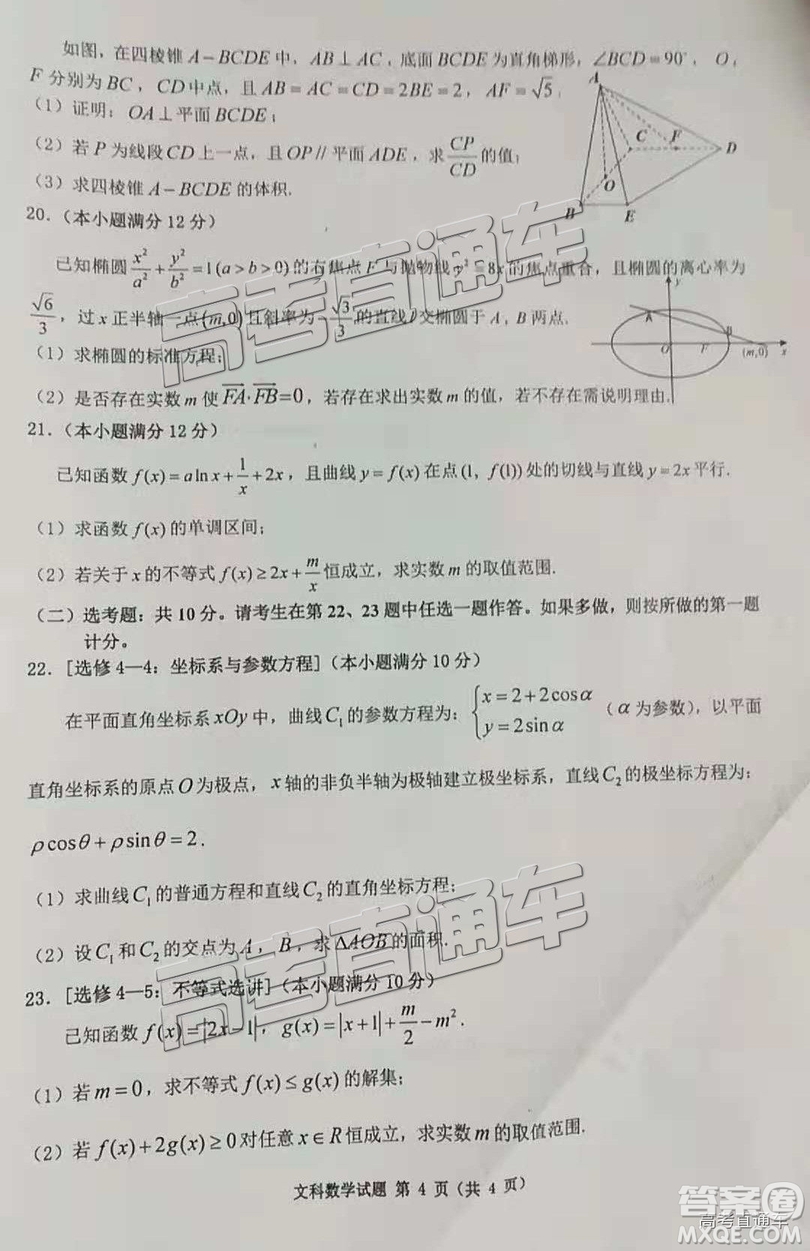 如图，在四棱锥 A－BCDE 中，AB⊥AC，底面 BCDE 为直角梯形，∠BCD=90°，O，
F 分别为 BC，CD 中点，且 AB=AC=CD=2BE=2，AF=√5．
（1）证明：OA⊥平面 BCDE；
（2）若 P 为线段 CD 上一点，且 OP∥平面 ADE，求 CP/CD 的值；
（3）求四棱锥 A－BCDE 的体积.
A
C
F
D
O
B
E
20.（本小题满分 12 分）
已知椭圆 x²/a²+y²/b²=1(a>b>0)的右焦点 F 与抛物线 y²=8x 的焦点重合，且椭圆的离心率为
√6/3，过 x 正半轴一点(m,0)且斜率为-√3/3 的直线 l 交椭圆于 A，B 两点.
（1）求椭圆的标准方程；
（2）是否存在实数 m 使 FA·FB=0，若存在求出实数 m 的值，若不存在需说明理由.
y
A
B
O
F
(m,0)
x
21.（本小题满分 12 分）
已知函数 f(x)=a ln x+1/x+2x，且曲线 y=f(x)在点(1, f(1))处的切线与直线 y=2x 平行.
（1）求函数 f(x)的单调区间；
（2）若关于 x 的不等式 f(x)≥2x+m/x 恒成立，求实数 m 的取值范围.
（二）选考题：共 10 分。请考生在第 22、23 题中任选一题作答。如果多做，则按所做的第一题
计分。
22.[选修 4—4：坐标系与参数方程]（本小题满分 10 分）
在平面直角坐标系 xOy 中，曲线 C₁的参数方程为：{x=2+2cosα
y=2sinα（α为参数），以平面
直角坐标系的原点 O 为极点，x 轴的非负半轴为极轴建立极坐标系，直线 C₂的极坐标方程为：
ρcosθ+ρsinθ=2.
（1）求曲线 C₁的普通方程和直线 C₂的直角坐标方程；
（2）设 C₁和 C₂的交点为 A，B，求 ΔAOB 的面积.
23.[选修 4—5：不等式选讲]（本小题满分 10 分）
已知函数 f(x)=|2x-1|，g(x)=|x+1|+m/2-m².
（1）若 m=0，求不等式 f(x)≤g(x)的解集；
（2）若 f(x)+2g(x)≥0 对任意 x∈R 恒成立，求实数 m 的取值范围.
文科数学试题 第 4 页（共 4 页）
高考直通车
高考直通车
答案圈
高考直通车
MXQE.COM